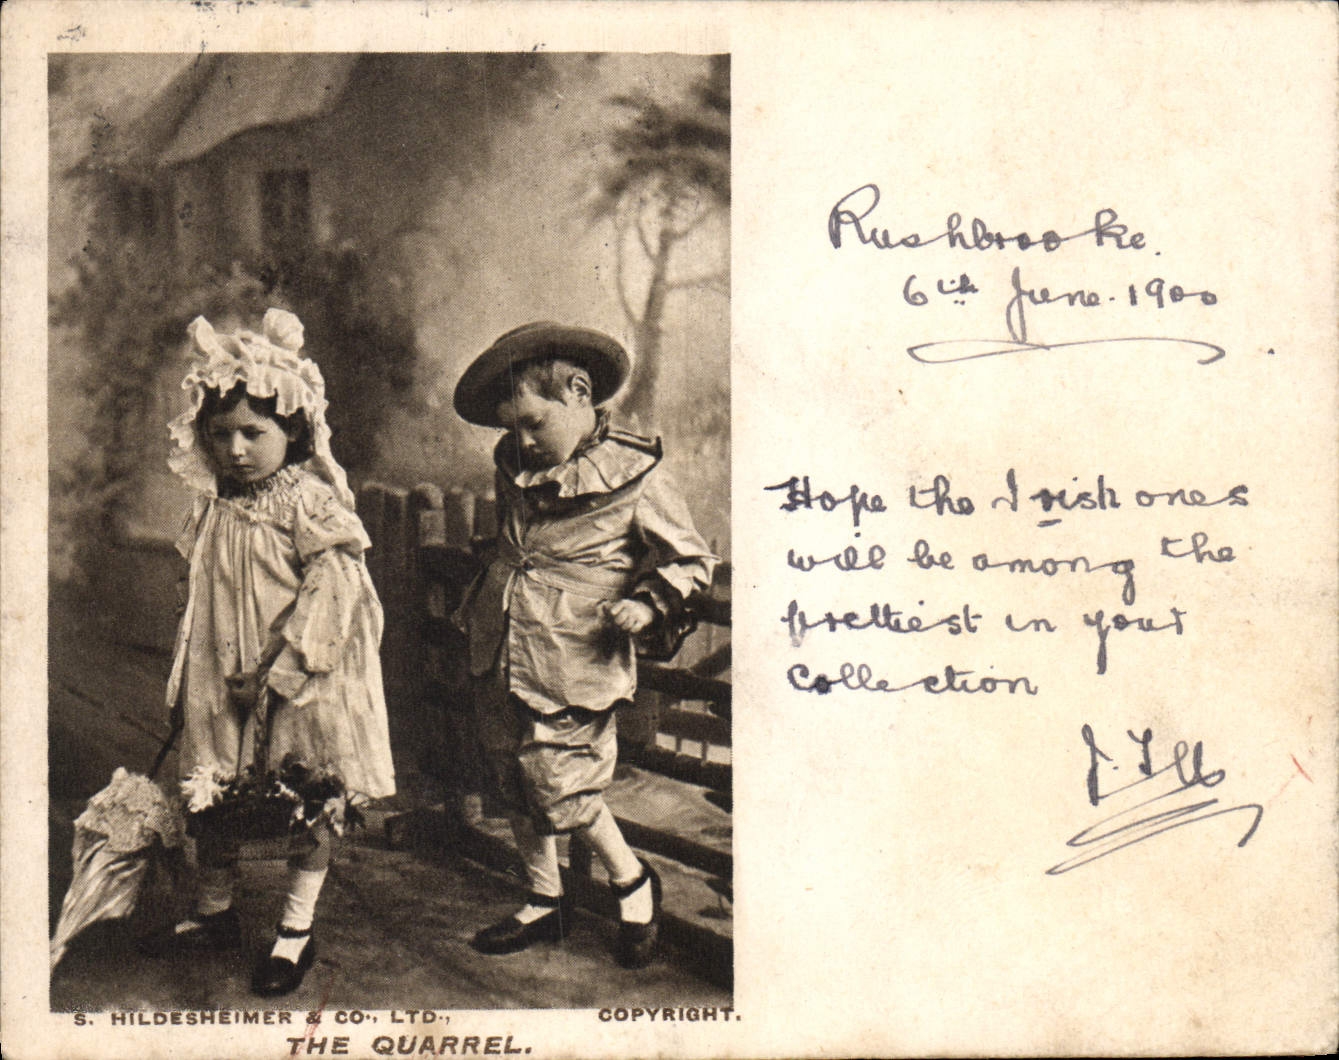 Rushbrooke.
6th June. 1900
Hope the Irish ones
will be among the
prettiest in your
Collection
S. HILDESHEIMER & CO., LTD., COPYRIGHT.
THE QUARREL.